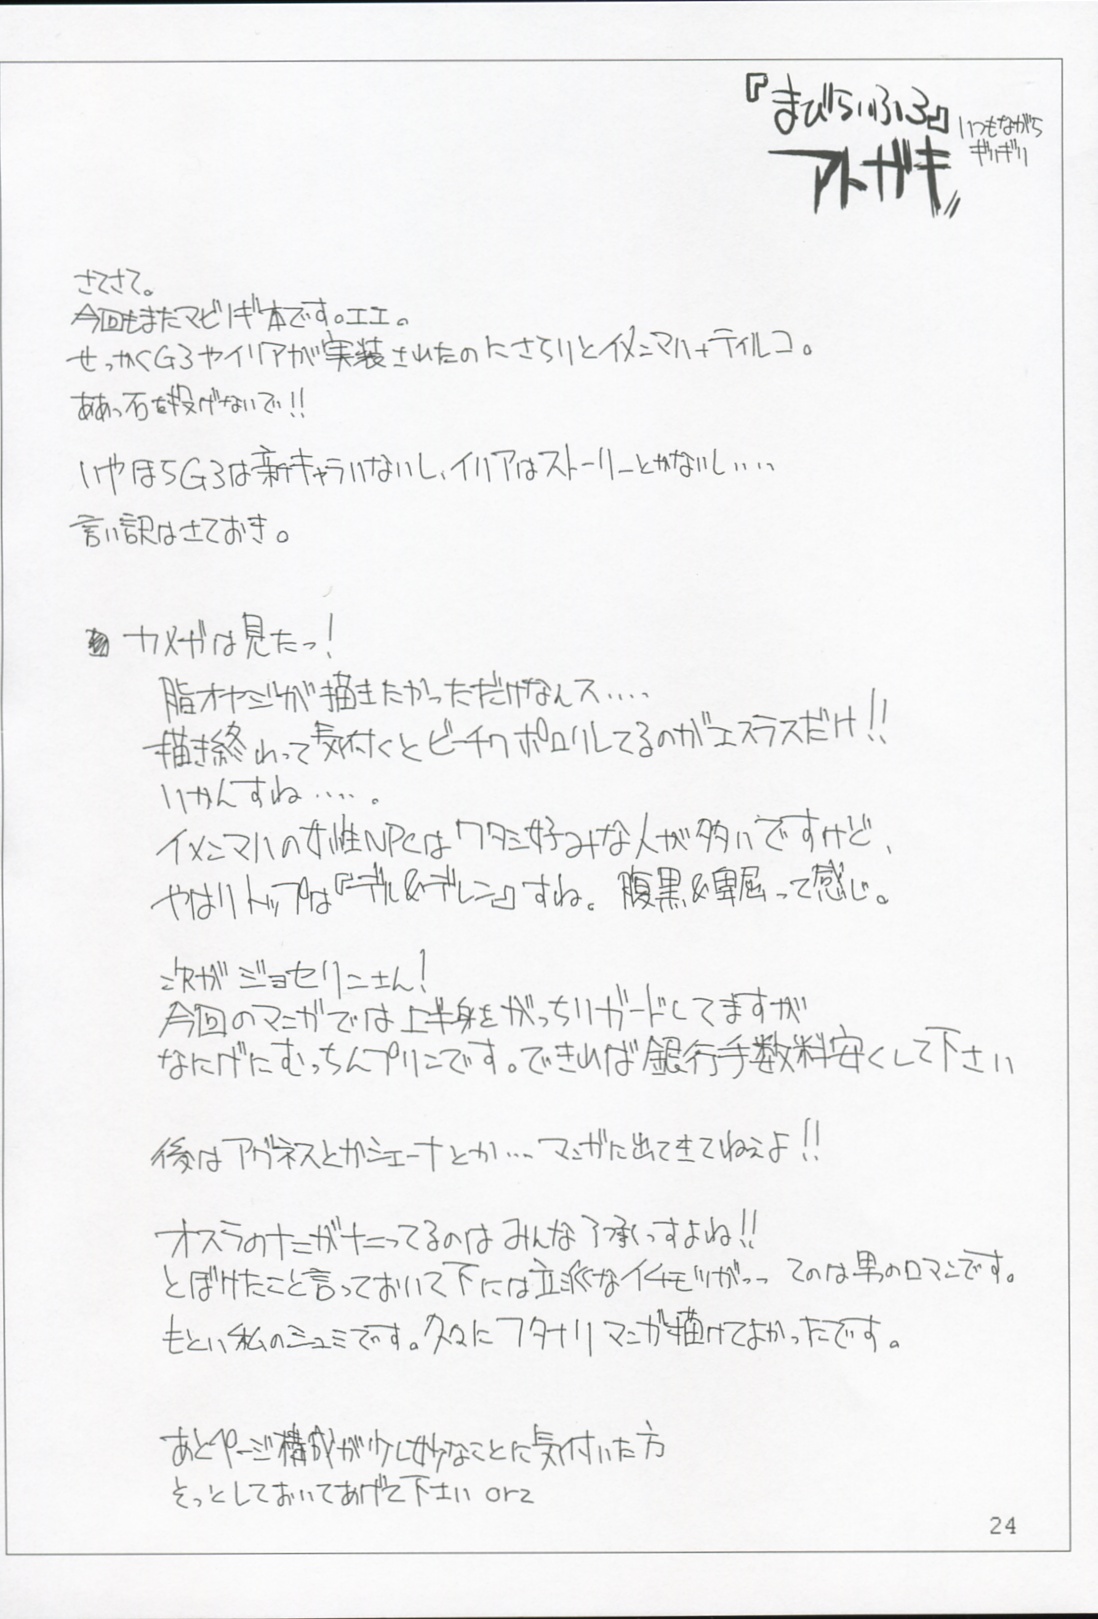 『まびらいふ3』
アトガキ
いつもながら
ギリギリ
さてさて。
今回もまたマビノギ本です。エエ。
せっかくG3やイリアが実装されたのにさらりとイメンマハ+ティルコ。
ああっ石を投げないで!!
いやほらG3は新キャラいないし、イリアはストーリーとかないし‥‥
言い訳はさておき。
カメガは見たっ!
脂オヤジが描きたかっただけなんス‥‥
描き終わって気付くとビーチクポロリしてるのがエスラスだけ!!
いかんすね‥‥。
イメンマハの女性NPCはワタシ好みな人が多いですけど、
やはりトップは『デル&デレン』すね。腹黒&卑屈って感じ。
次がジョセリンさん!
今回のマンガでは上半身をがっちりガードしてますが
なにげにむっちんプリンです。できれば銀行手数料安くして下さい
後はアグネスとかシェーナとか‥‥マンガに出て来てねぇよ!!
オスラのナニがナニってるのはみんな了承っすよね!!
とぼけたこと言っておいて下には立派なイチモツがっ‥てのは男のロマンです。
もとい私のシュミです。久々にフタナリマンガ描けてよかったです。
あとページ構成が少し妙なことに気付いた方
そっとしておいてあげて下さい orz
24